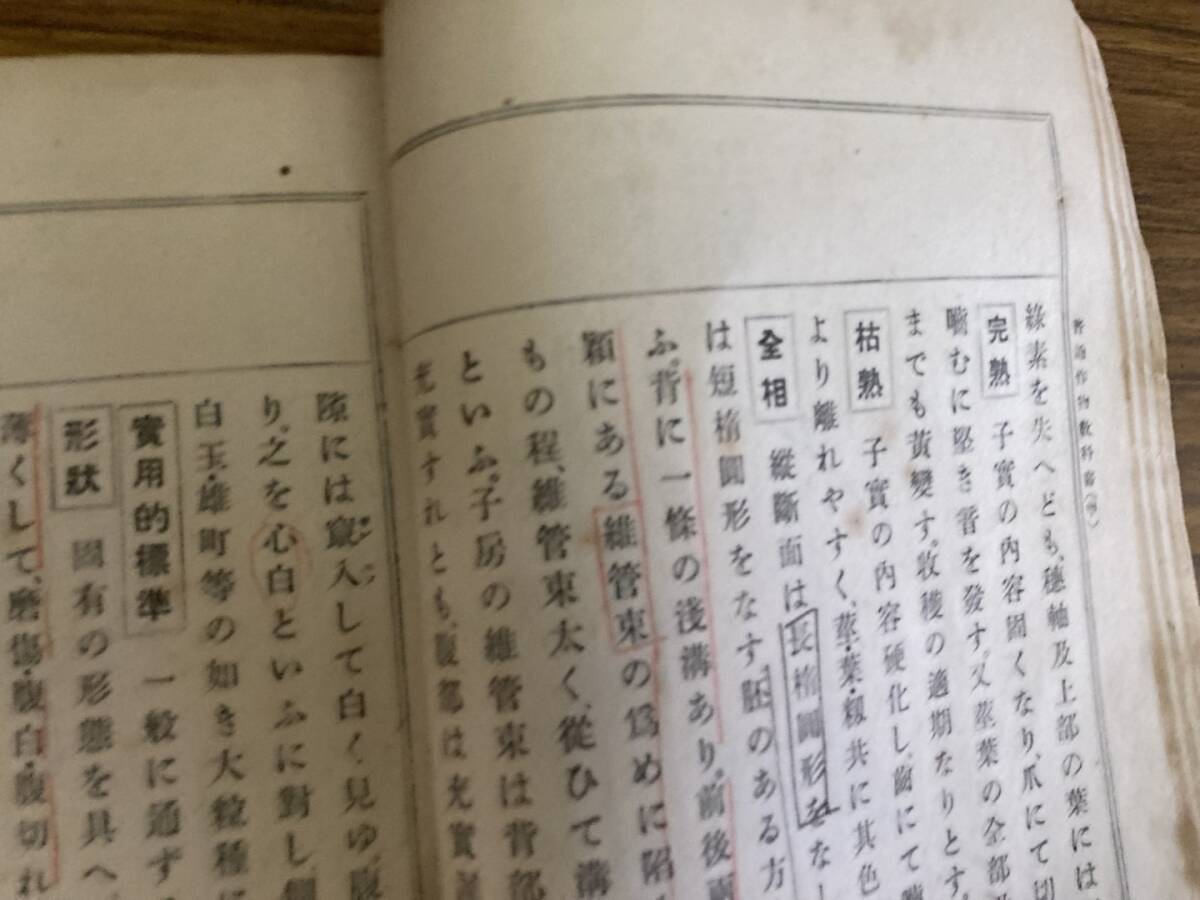 普通作物教科書
綠素を失へども、穗軸及上部の葉には
完熟 子實の內容固くなり、爪にて切
嚙むに堅き音を發す。又莖葉の全部
までも黃變す。收穫の適期なりとす。
枯熟 子實の內容硬化し、齒にて
より離れやすく、莖・葉・稈共に其色
全相 縱斷面は長橢圓形をな
は短橢圓形をなす。胚のある方
ふ。背に一條の淺溝あり、前後
穎にある維管束の爲めに陷
もの程、維管束太く、從ひて溝
といふ。子房の維管束は背部
充實すれども、腹部は充實
隙には竄入して白く見ゆ、腹
り。之を心白といふに對し、
白玉・雄町等の如き大粒種に
實用的標準 一般に通ず
形狀 固有の形態を具へ
薄くして、磨傷・腹白・腹切れ